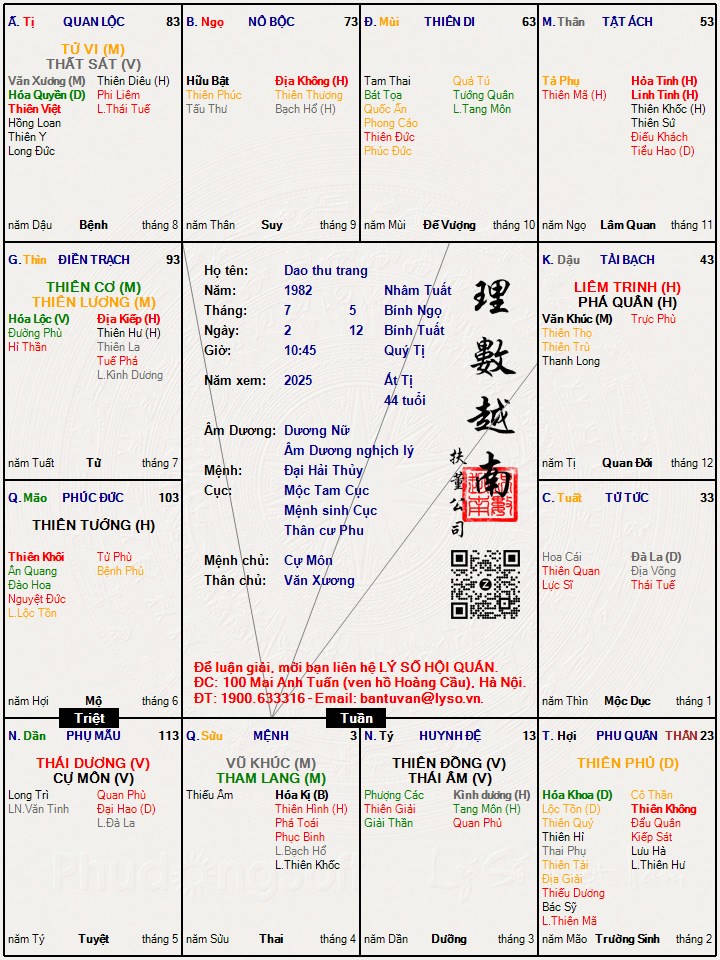 Ấ. Tị QUAN LỘC 83
TỬ VI (M)
THẤT SÁT (V)
Văn Xương (M) Thiên Diêu (H)
Hóa Quyền (D) Phi Liêm
Thiên Việt L.Thái Tuế
Hồng Loan
Thiên Y
Long Đức
năm Dậu Bệnh tháng 8
B. Ngọ NÔ BỘC 73
Hữu Bật Địa Không (H)
Thiên Phúc Thiên Thương
Tấu Thư Bạch Hổ (H)
năm Thân Suy tháng 9
Đ. Mùi THIÊN DI 63
Tam Thai Quả Tú
Bát Tọa Tướng Quân
Quốc Ấn L.Tang Môn
Phong Cáo
Thiên Đức
Phúc Đức
năm Mùi Đế Vượng tháng 10
M. Thân TẬT ÁCH 53
Tả Phụ Hỏa Tinh (H)
Thiên Mã (H) Linh Tinh (H)
Thiên Khốc (H)
Thiên Sứ
Điếu Khách
Tiểu Hao (D)
năm Ngọ Lâm Quan tháng 11
G. Thìn ĐIỀN TRẠCH 93
THIÊN CƠ (M)
THIÊN LƯƠNG (M)
Hóa Lộc (V) Địa Kiếp (H)
Đường Phù Thiên Hư (H)
Hỉ Thần Thiên La
Tuế Phá
L.Kình Dương
năm Tuất Tử tháng 7
Họ tên: Dao thu trang
Năm: 1982 Nhâm Tuất
Tháng: 7 5 Bính Ngọ
Ngày: 2 12 Bính Tuất
Giờ: 10:45 Quý Tị
Năm xem: 2025 Ất Tị
44 tuổi
Âm Dương: Dương Nữ
Âm Dương nghịch lý
Mệnh: Đại Hải Thủy
Cục: Mộc Tam Cục
Mệnh sinh Cục
Thân cư Phu
Mệnh chủ: Cự Môn
Thân chủ: Văn Xương
理數越南
扶董公司
Để luận giải, mời bạn liên hệ LÝ SỐ HỘI QUÁN.
ĐC: 100 Mai Anh Tuấn (ven hồ Hoàng Cầu), Hà Nội.
ĐT: 1900.633316 - Email: bantuvan@lyso.vn.
K. Dậu TÀI BẠCH 43
LIÊM TRINH (H)
PHÁ QUÂN (H)
Văn Khúc (M) Trực Phù
Thiên Thọ
Thiên Trù
Thanh Long
năm Tị Quan Đới tháng 12
Q. Mão PHÚC ĐỨC 103
THIÊN TƯỚNG (H)
Thiên Khôi Tử Phù
Ân Quang Bệnh Phù
Đào Hoa
Nguyệt Đức
L.Lộc Tồn
năm Hợi Mộ tháng 6
C. Tuất TỬ TỨC 33
Hoa Cái Đà La (D)
Thiên Quan Địa Võng
Lực Sĩ Thái Tuế
năm Thìn Mộc Dục tháng 1
Triệt
Tuần
N. Dần PHỤ MẪU 113
THÁI DƯƠNG (V)
CỰ MÔN (V)
Long Trì Quan Phù
LN.Văn Tinh Đại Hao (D)
L.Đà La
năm Tý Tuyệt tháng 5
Q. Sửu MỆNH 3
VŨ KHÚC (M)
THAM LANG (M)
Thiếu Âm Hóa Kị (B)
Thiên Hình (H)
Phá Toái
Phục Binh
L.Bạch Hổ
L.Thiên Khốc
năm Sửu Thai tháng 4
N. Tý HUYNH ĐỆ 13
THIÊN ĐỒNG (V)
THÁI ÂM (V)
Phượng Các Kình dương (H)
Thiên Giải Tang Môn (H)
Giải Thần Quan Phủ
năm Dần Dưỡng tháng 3
T. Hợi PHU QUÂN THÂN 23
THIÊN PHỦ (D)
Hóa Khoa (D) Cô Thần
Lộc Tồn (D) Thiên Không
Thiên Quý Đẩu Quân
Thiên Hỉ Kiếp Sát
Thai Phụ Lưu Hà
Thiên Tài L.Thiên Hư
Địa Giải
Thiếu Dương
Bác Sỹ
L.Thiên Mã
năm Mão Trường Sinh tháng 2